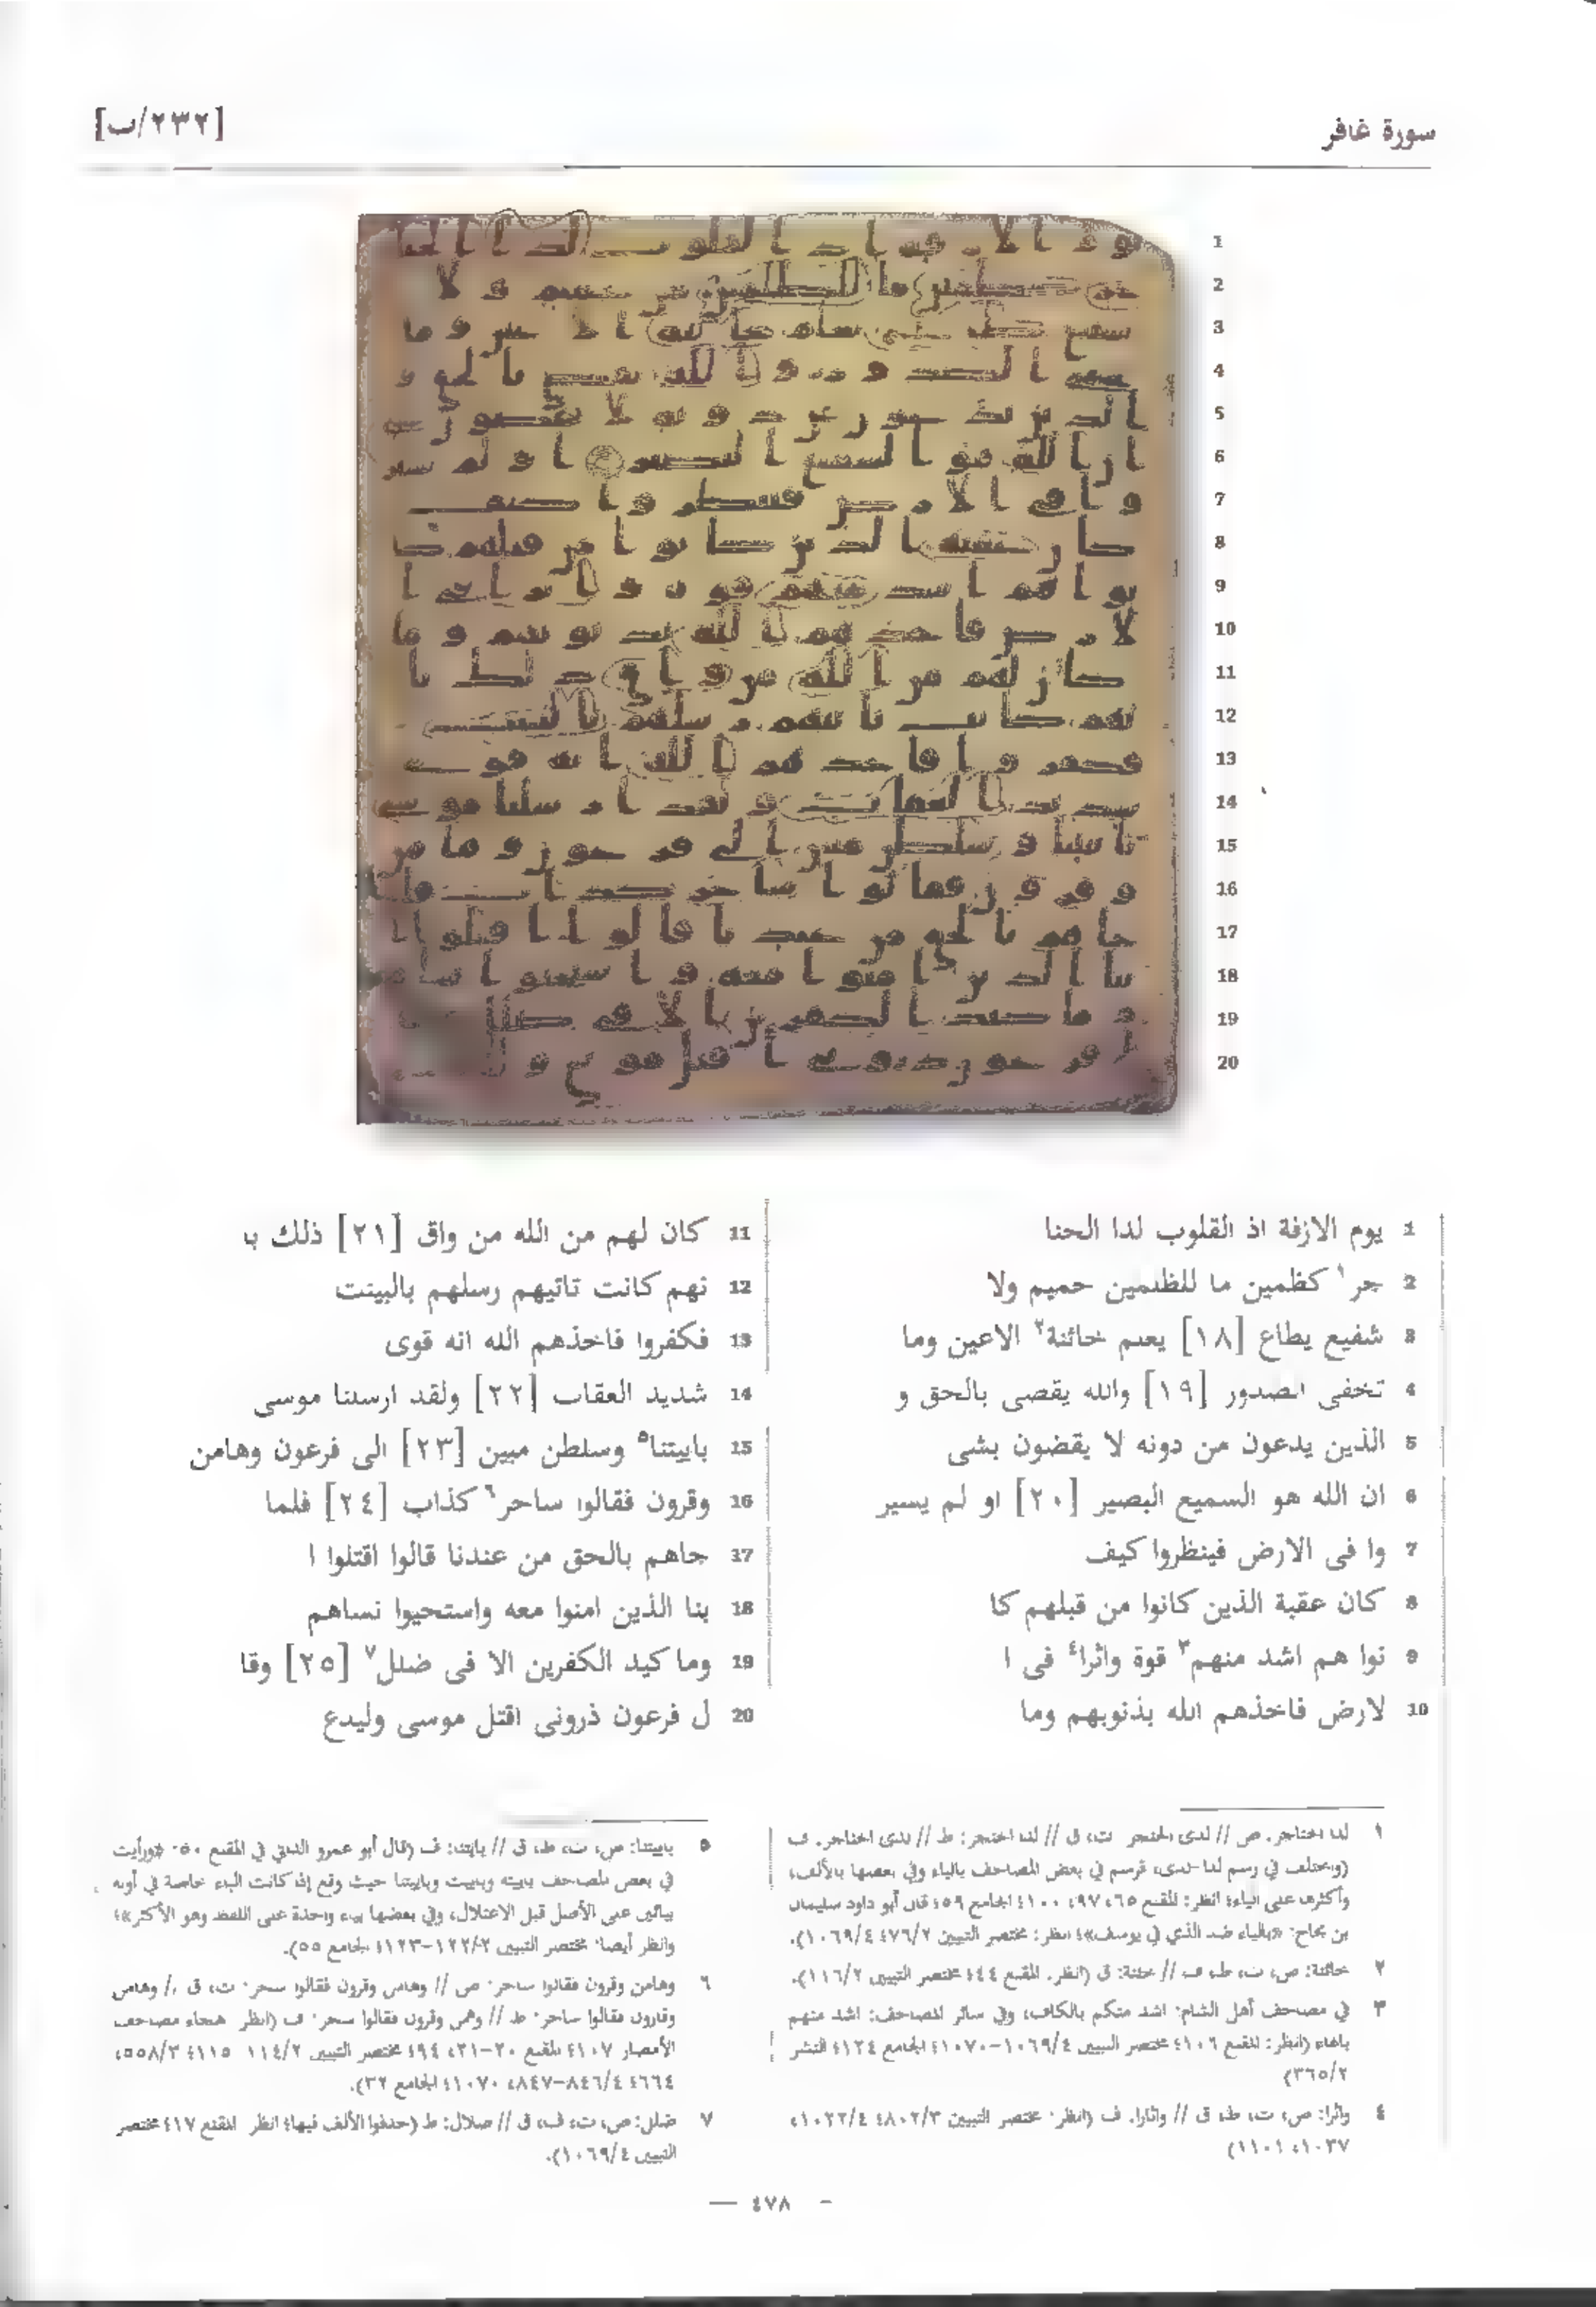 سورة غافر
[٢٣٢/ب]
1 يوم الازفة اذ القلوب لدا الحنا
2 جر١ كظمين ما للظلمين حميم ولا
3 شفيع يطاع [١٨] يعلم خائنة٢ الاعين وما
4 تخفى الصدور [١٩] والله يقضى بالحق و
5 الذين يدعون من دونه لا يقضون بشى
6 ان الله هو السميع البصير [٢٠] او لم يسير
7 وا فى الارض فينظروا كيف
8 كان عقبة الذين كانوا من قبلهم كا
9 نوا هم اشد منهم٣ قوة واثرا٤ فى ا
10 لارض فاخذهم الله بذنوبهم وما
11 كان لهم من الله من واق [٢١] ذلك با
12 نهم كانت تاتيهم رسلهم بالبينت
13 فكفروا فاخذهم الله انه قوى
14 شديد العقاب [٢٢] ولقد ارسلنا موسى
15 باييتنا٥ وسلطن مبين [٢٣] الى فرعون وهامن
16 وقرون فقالوا ساحر٦ كذاب [٢٤] فلما
17 جاهم بالحق من عندنا قالوا اقتلوا ا
18 بنا الذين امنوا معه واستحيوا نساهم
19 وما كيد الكفرين الا فى ضلل٧ [٢٥] وقا
20 ل فرعون ذرونى اقتل موسى وليدع
١ لدا الحناجر: ص // لدى الحنجر: ت، ق // لدا الحنجر: ط // لدى الحناجر: ف
(ويختلف في رسم لدا-لدى، فرسم في بعض المصاحف بالياء وفي بعضها بالألف،
وأكثرها على الياء؛ انظر: المقنع ٦٥، ٩٧، ١٠٠؛ الجامع ٥٩؛ قال أبو داود سليمان
بن نجاح: «بالياء ضد الذي في يوسف»؛ انظر: مختصر التبيين ٧٦/٢؛ ١٠٦٩/٤).
٢ خائنة: ص، ت، ط، ف // خئنة: ق (انظر: المقنع ٤٤؛ مختصر التبيين ١١٦/٢).
٣ في مصاحف أهل الشام: اشد منكم بالكاف، وفي سائر المصاحف: اشد منهم
بالهاء (انظر: المقنع ١٠٦؛ مختصر التبيين ١٠٦٩/٤-١٠٧٠؛ الجامع ١٢٤؛ النشر
٣٦٥/٢)
٤ واثرا: ص، ت، ط، ق // واثارا: ف (انظر: مختصر التبيين ٨٠٢/٣؛ ١٠٢٢/٤،
١٠٣٧، ١١٠١)
٥ باييتنا: ص، ت، ط، ق // بايتنا: ف (قال أبو عمرو الداني في المقنع ٥٠: «ورأيت
في بعض المصاحف باييته وباييت وباييتنا حيث وقع إذا كانت الباء خاصة في أوله
بيائين على الأصل قبل الاعتلال، وفي بعضها بياء واحدة على اللفظ وهو الأكثر»؛
وانظر أيضا: مختصر التبيين ١٢٢/٢-١٢٣؛ الجامع ٥٥).
٦ وهامن وقرون فقالوا ساحر: ص // وهامن وقرون فقالوا سحر: ت، ق // وهامن
وقارون فقالوا ساحر: ط // وهمن وقرون فقالوا سحر: ف (انظر: هجاء مصاحف
الأمصار ١٠٧؛ المقنع ٢٠-٢١، ٩٤؛ مختصر التبيين ١١٤/٢، ١١٥؛ ٥٥٨/٣،
٦٦٤؛ ٨٤٦/٤-٨٤٧، ١٠٧٠؛ الجامع ٣٢).
٧ ضلل: ص، ت، ف، ق // ضلال: ط (حذفوا الألف فيها؛ انظر: المقنع ١٧؛ مختصر
التبيين ١٠٦٩/٤).
— ٤٧٨ —